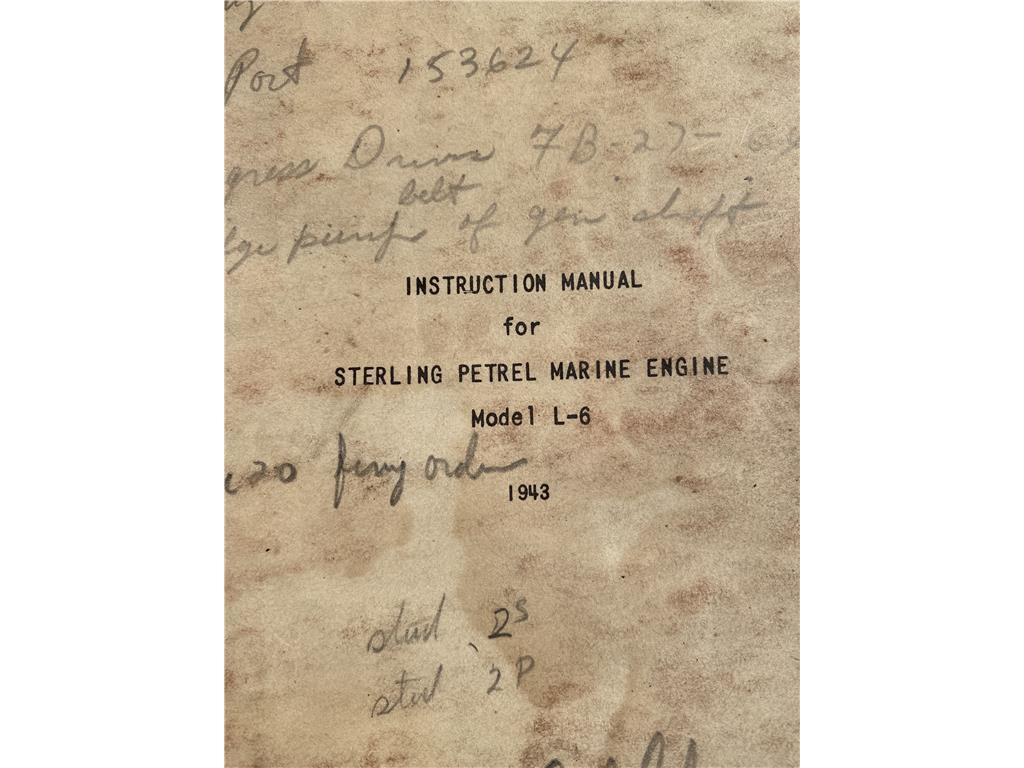 Port 153624
gress Drive 7B-27-
belt
lge pump of gen shaft
INSTRUCTION MANUAL
for
STERLING PETREL MARINE ENGINE
Model L-6
20
1943
stud 2S
stud 2P